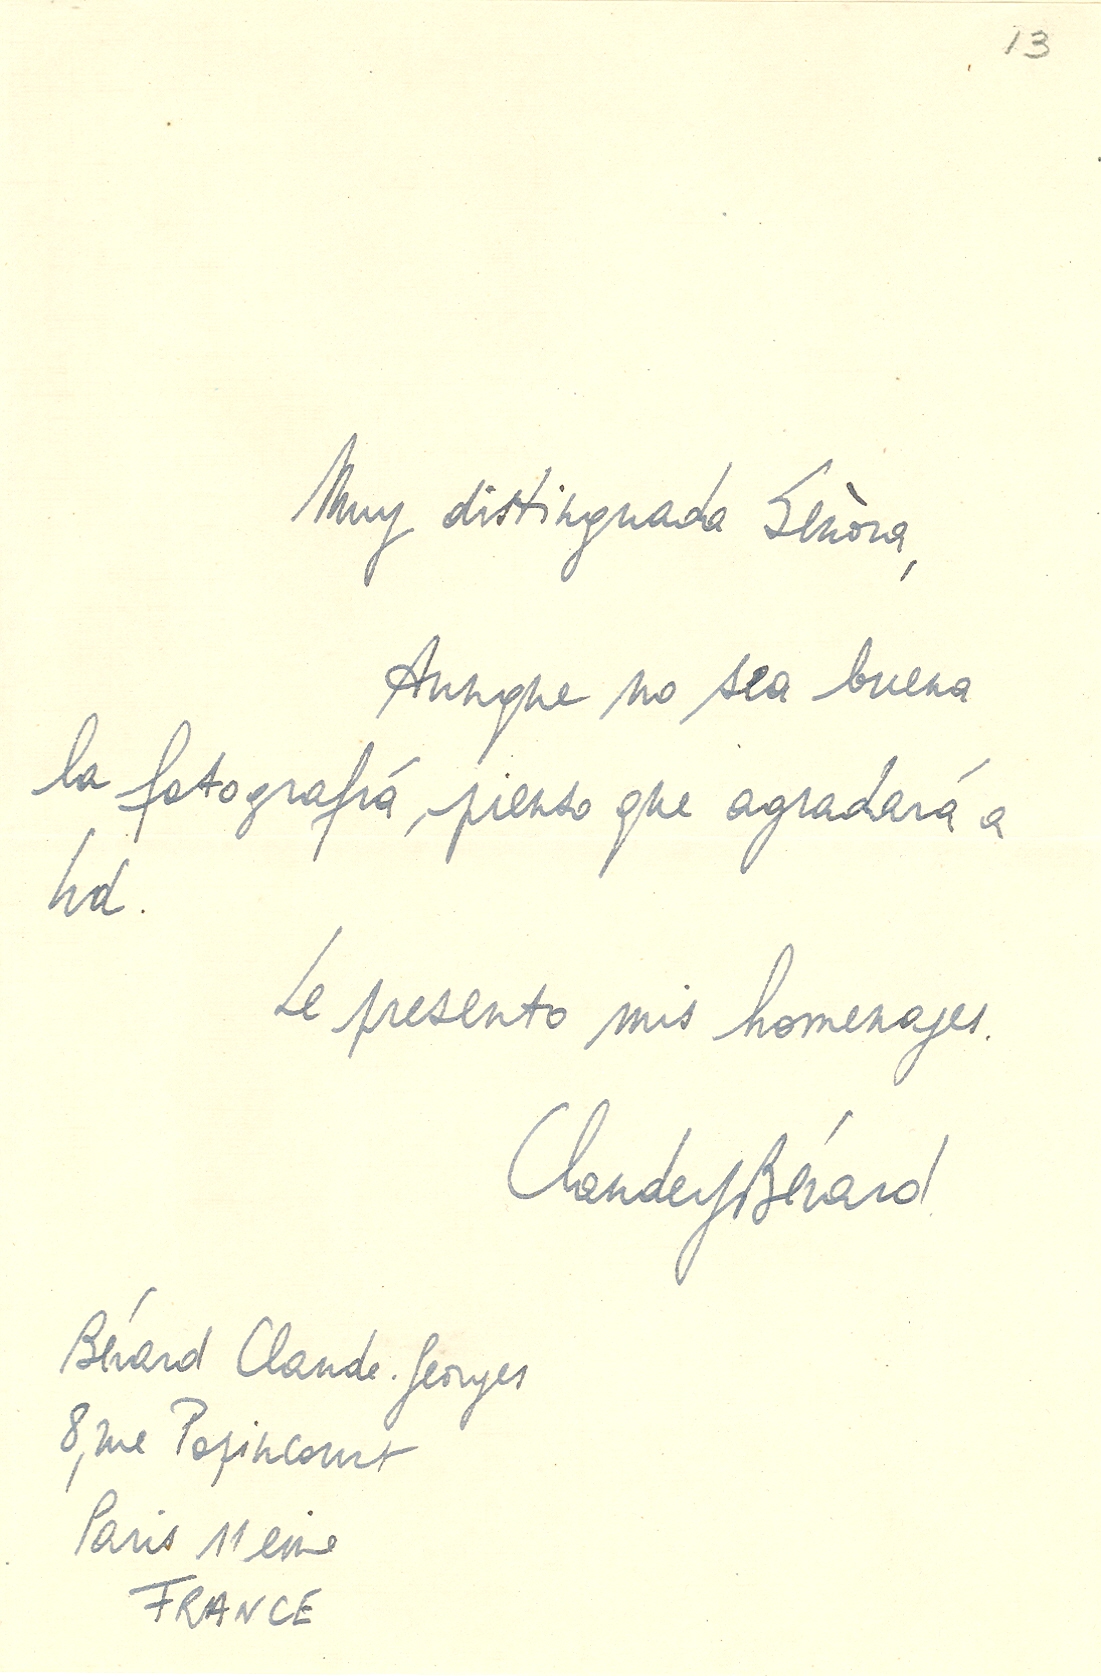 13
Muy distinguada Señora,
Aunque no sea buena
la fotografiá, pienso que agradará a
Ud.
Le presento mis homenajes.
ClaudeGBérard
Bérard Claude. Georges
8, rue Popincourt
Paris 11 eme
FRANCE